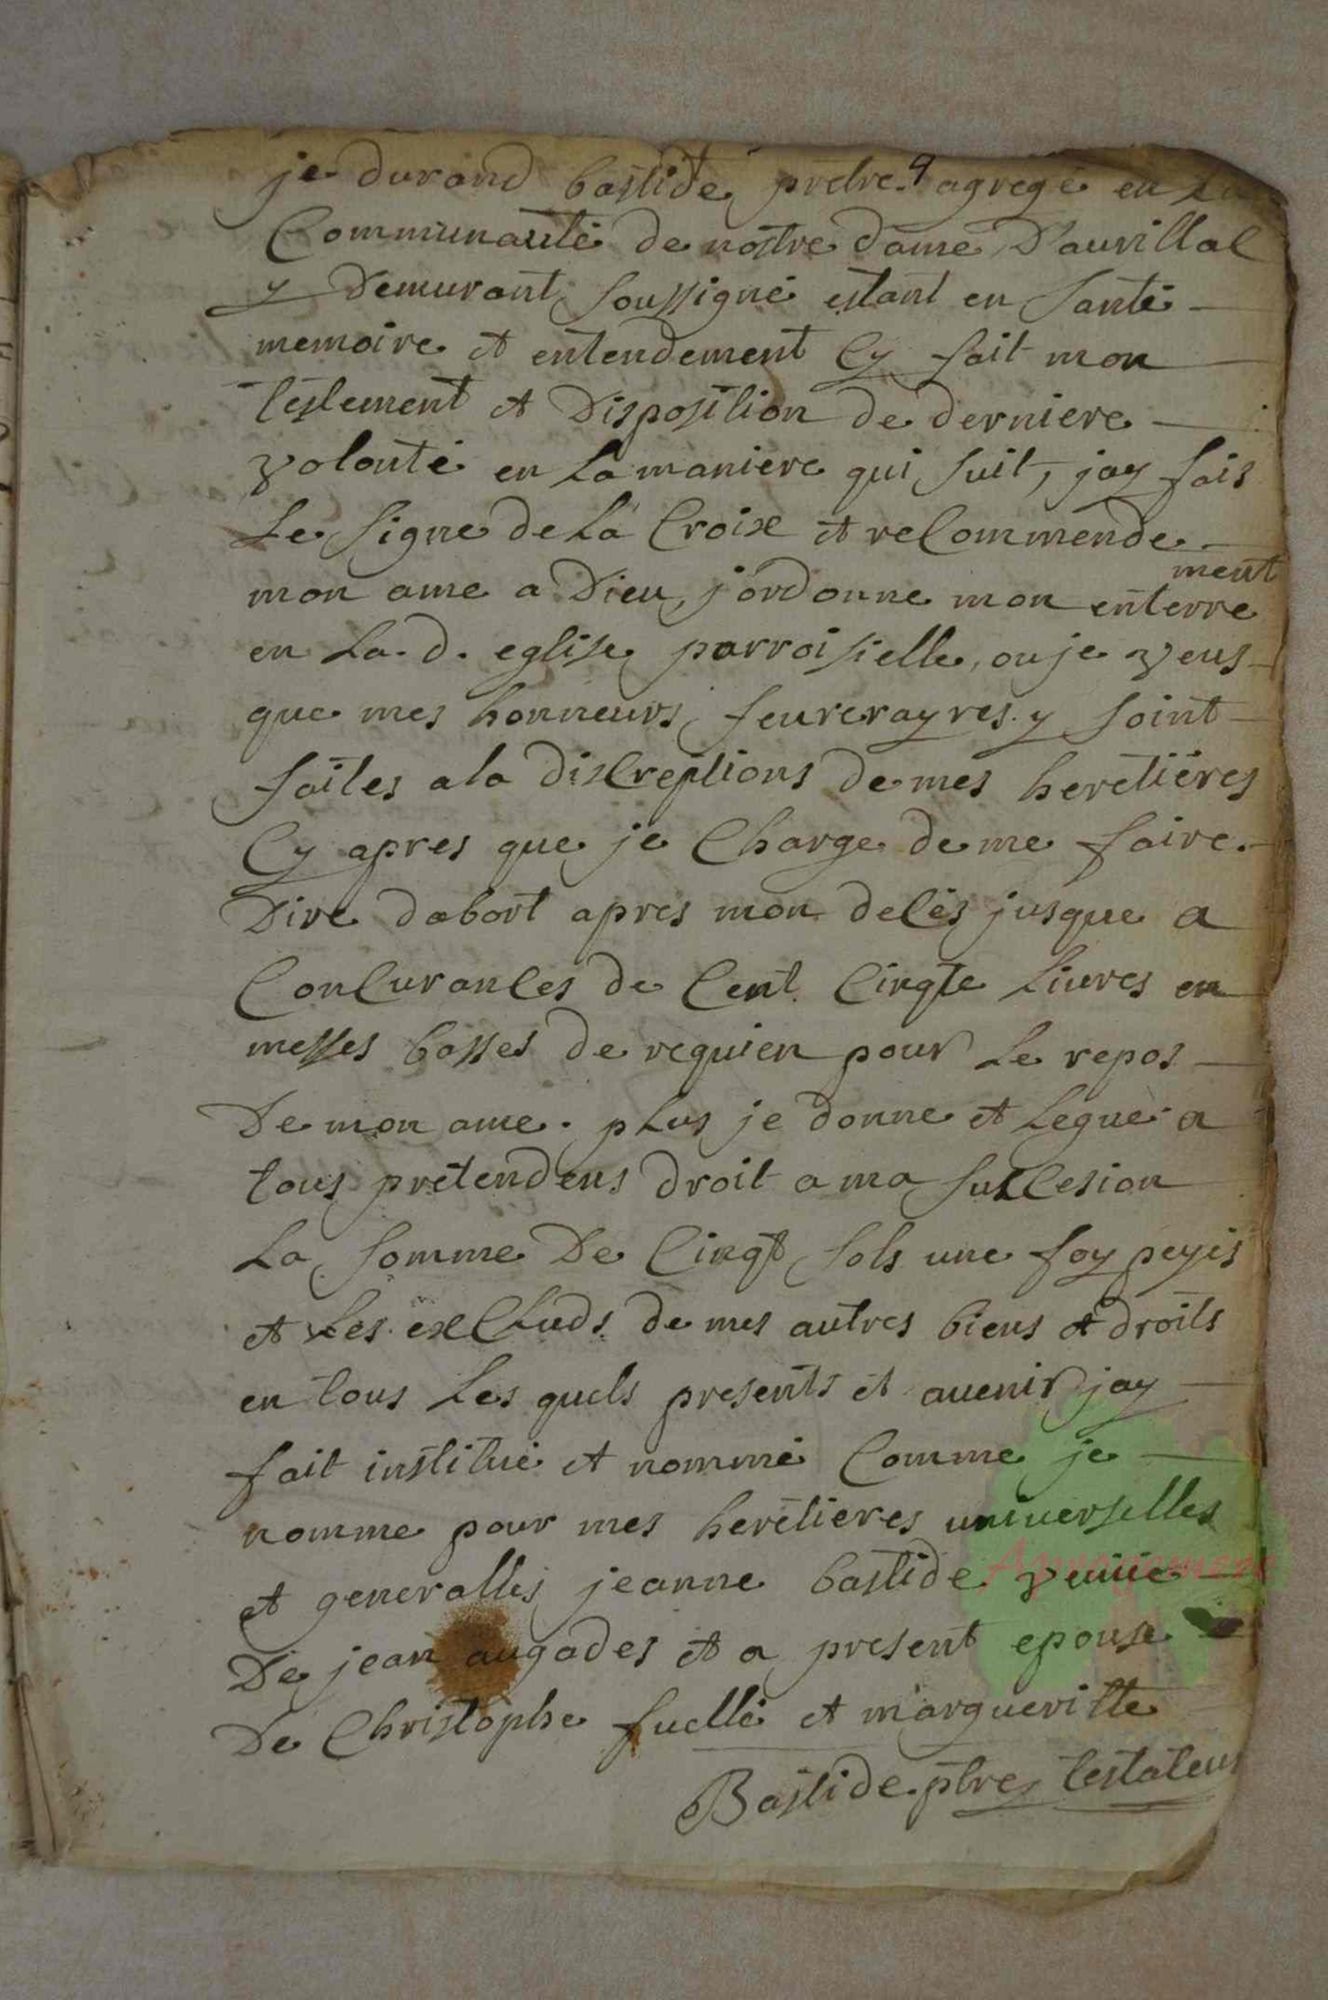 je durand bastide, prestre agregé en La
Communauté de nostre dame D'auvillal
y Demurant, soussigné estant en santé
memoire et entendement Cy fait mon
testement et Disposition de derniere
volonté en La maniere qui suit, jay fais
Le signe de La Croix et reCommende
mon ame a Dieu, j'ordonne mon enterre
ment
en La. d. eglise parroisielle, ou je veus
que mes honneurs feurerayres y soint
faites a la disCreptions de mes heretières
Cy apres que je Charge de me faire
Dire dabort apres mon deCés jusque a
ConCuranCes de Cent Cinqte Livres en
messes basses de requien pour Le repos
De mon ame. plus je donne et Legue a
tous pretendens droit a ma sucCesion
La somme De Cinqt sols une foy peyés
et Les exCluds de mes autres biens et droits
en tous Les quels presents et avenir jay
fait institué et nommé Comme je
nomme pour mes heretieres universelles
et generalles jeanne bastide veuve
De jean augades et a present epouse
De Christophe fuellé et margueritte
Bastide ptre testateur